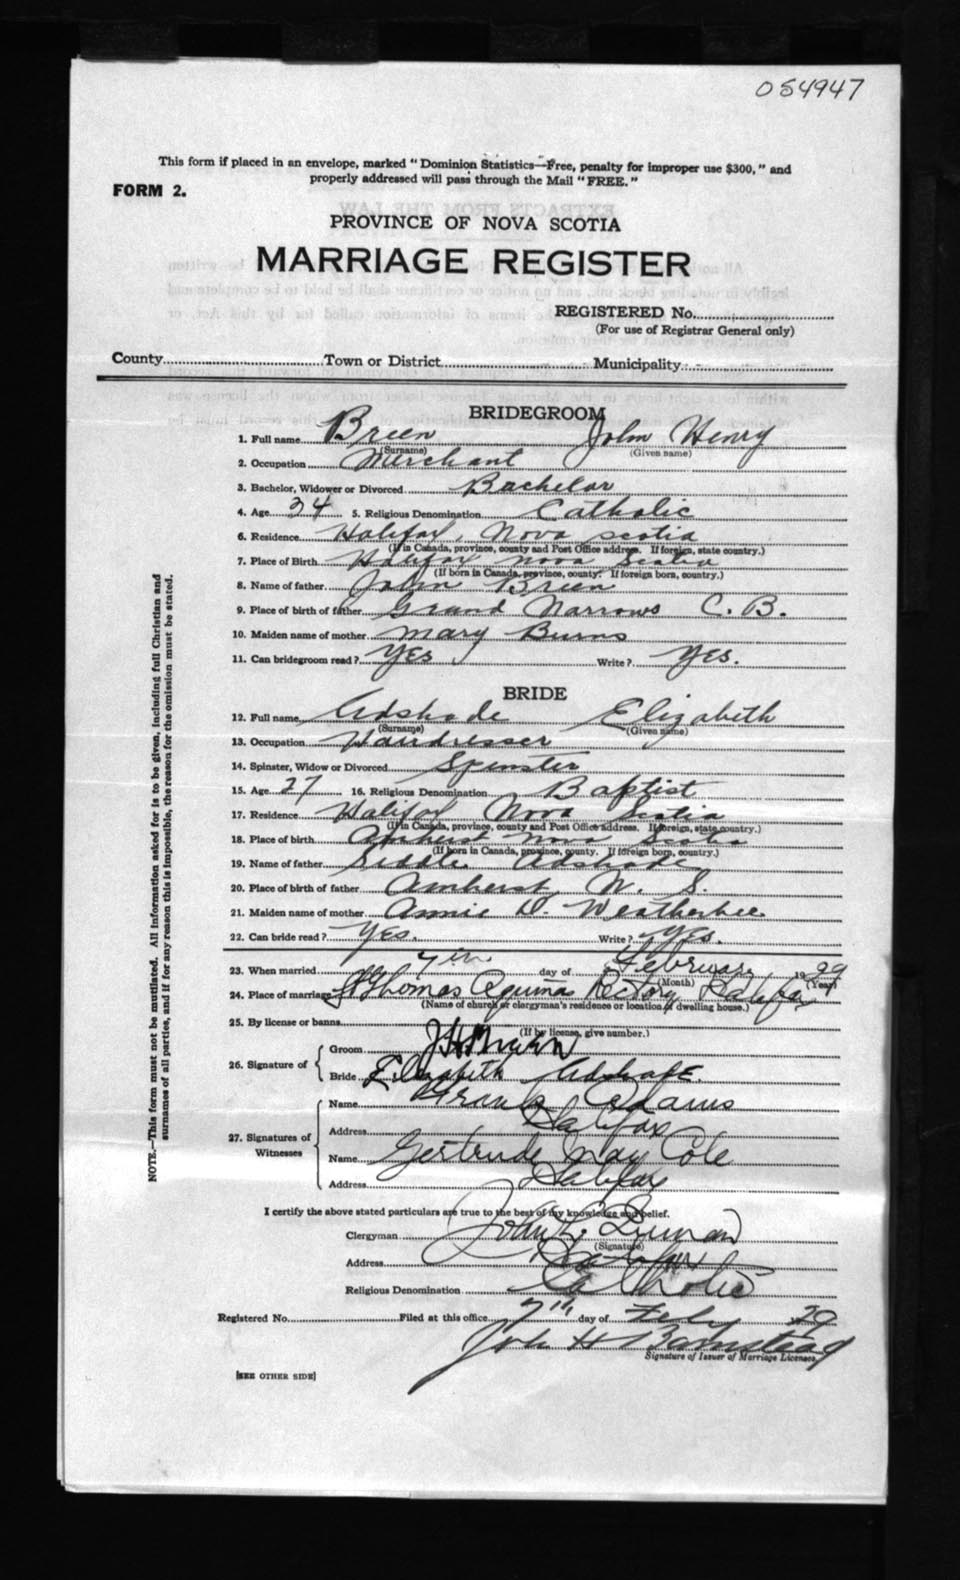 054947
This form if placed in an envelope, marked "Dominion Statistics—Free, penalty for improper use $300," and
properly addressed will pass through the Mail "FREE."
FORM 2.
PROVINCE OF NOVA SCOTIA
MARRIAGE REGISTER
REGISTERED No.
(For use of Registrar General only)
County Town or District Municipality
BRIDEGROOM
1. Full name Breen John Henry
(Surname) (Given name)
2. Occupation Merchant
3. Bachelor, Widower or Divorced Bachelor
4. Age 34 5. Religious Denomination Catholic
6. Residence Halifax, Nova Scotia
(If in Canada, province, county and Post Office address. If foreign, state country.)
7. Place of Birth Halifax Nova Scotia
(If born in Canada, province, county. If foreign born, country.)
8. Name of father John Breen
9. Place of birth of father Grand Narrows C. B.
10. Maiden name of mother Mary Burns
11. Can bridegroom read? Yes Write? Yes.
BRIDE
12. Full name Adshade Elizabeth
(Surname) (Given name)
13. Occupation Hairdresser
14. Spinster, Widow or Divorced Spinster
15. Age 27 16. Religious Denomination Baptist
17. Residence Halifax Nova Scotia
(If in Canada, province, county and Post Office address. If foreign, state country.)
18. Place of birth Amherst Nova Scotia
(If born in Canada, province, county. If foreign born, country.)
19. Name of father Adshade
20. Place of birth of father Amherst, N. S.
21. Maiden name of mother Annie D. Weatherbee
22. Can bride read? Yes. Write? Yes.
23. When married 7th day of February 1929
(Month) (Year)
24. Place of marriage St Thomas Aquinas Rectory Halifax
(Name of church or clergyman's residence or location of dwelling house.)
25. By license or banns
(If by license, give number.)
26. Signature of Groom J H Breen
Bride Elizabeth Adshade.
27. Signatures of Witnesses
Name Frank Adams
Address Halifax
Name Gertrude May Cole
Address Halifax
I certify the above stated particulars are true to the best of my knowledge and belief.
Clergyman John L.
(Signature)
Address Halifax
Religious Denomination Catholic
Registered No. Filed at this office 7th day of Feby 29
John H Barnstead
Signature of Issuer of Marriage Licenses.
[SEE OTHER SIDE]
NOTE.—This form must not be mutilated. All information asked for is to be given, including full Christian and
surnames of all parties, and if for any reason this is impossible, the reason for the omission must be stated.